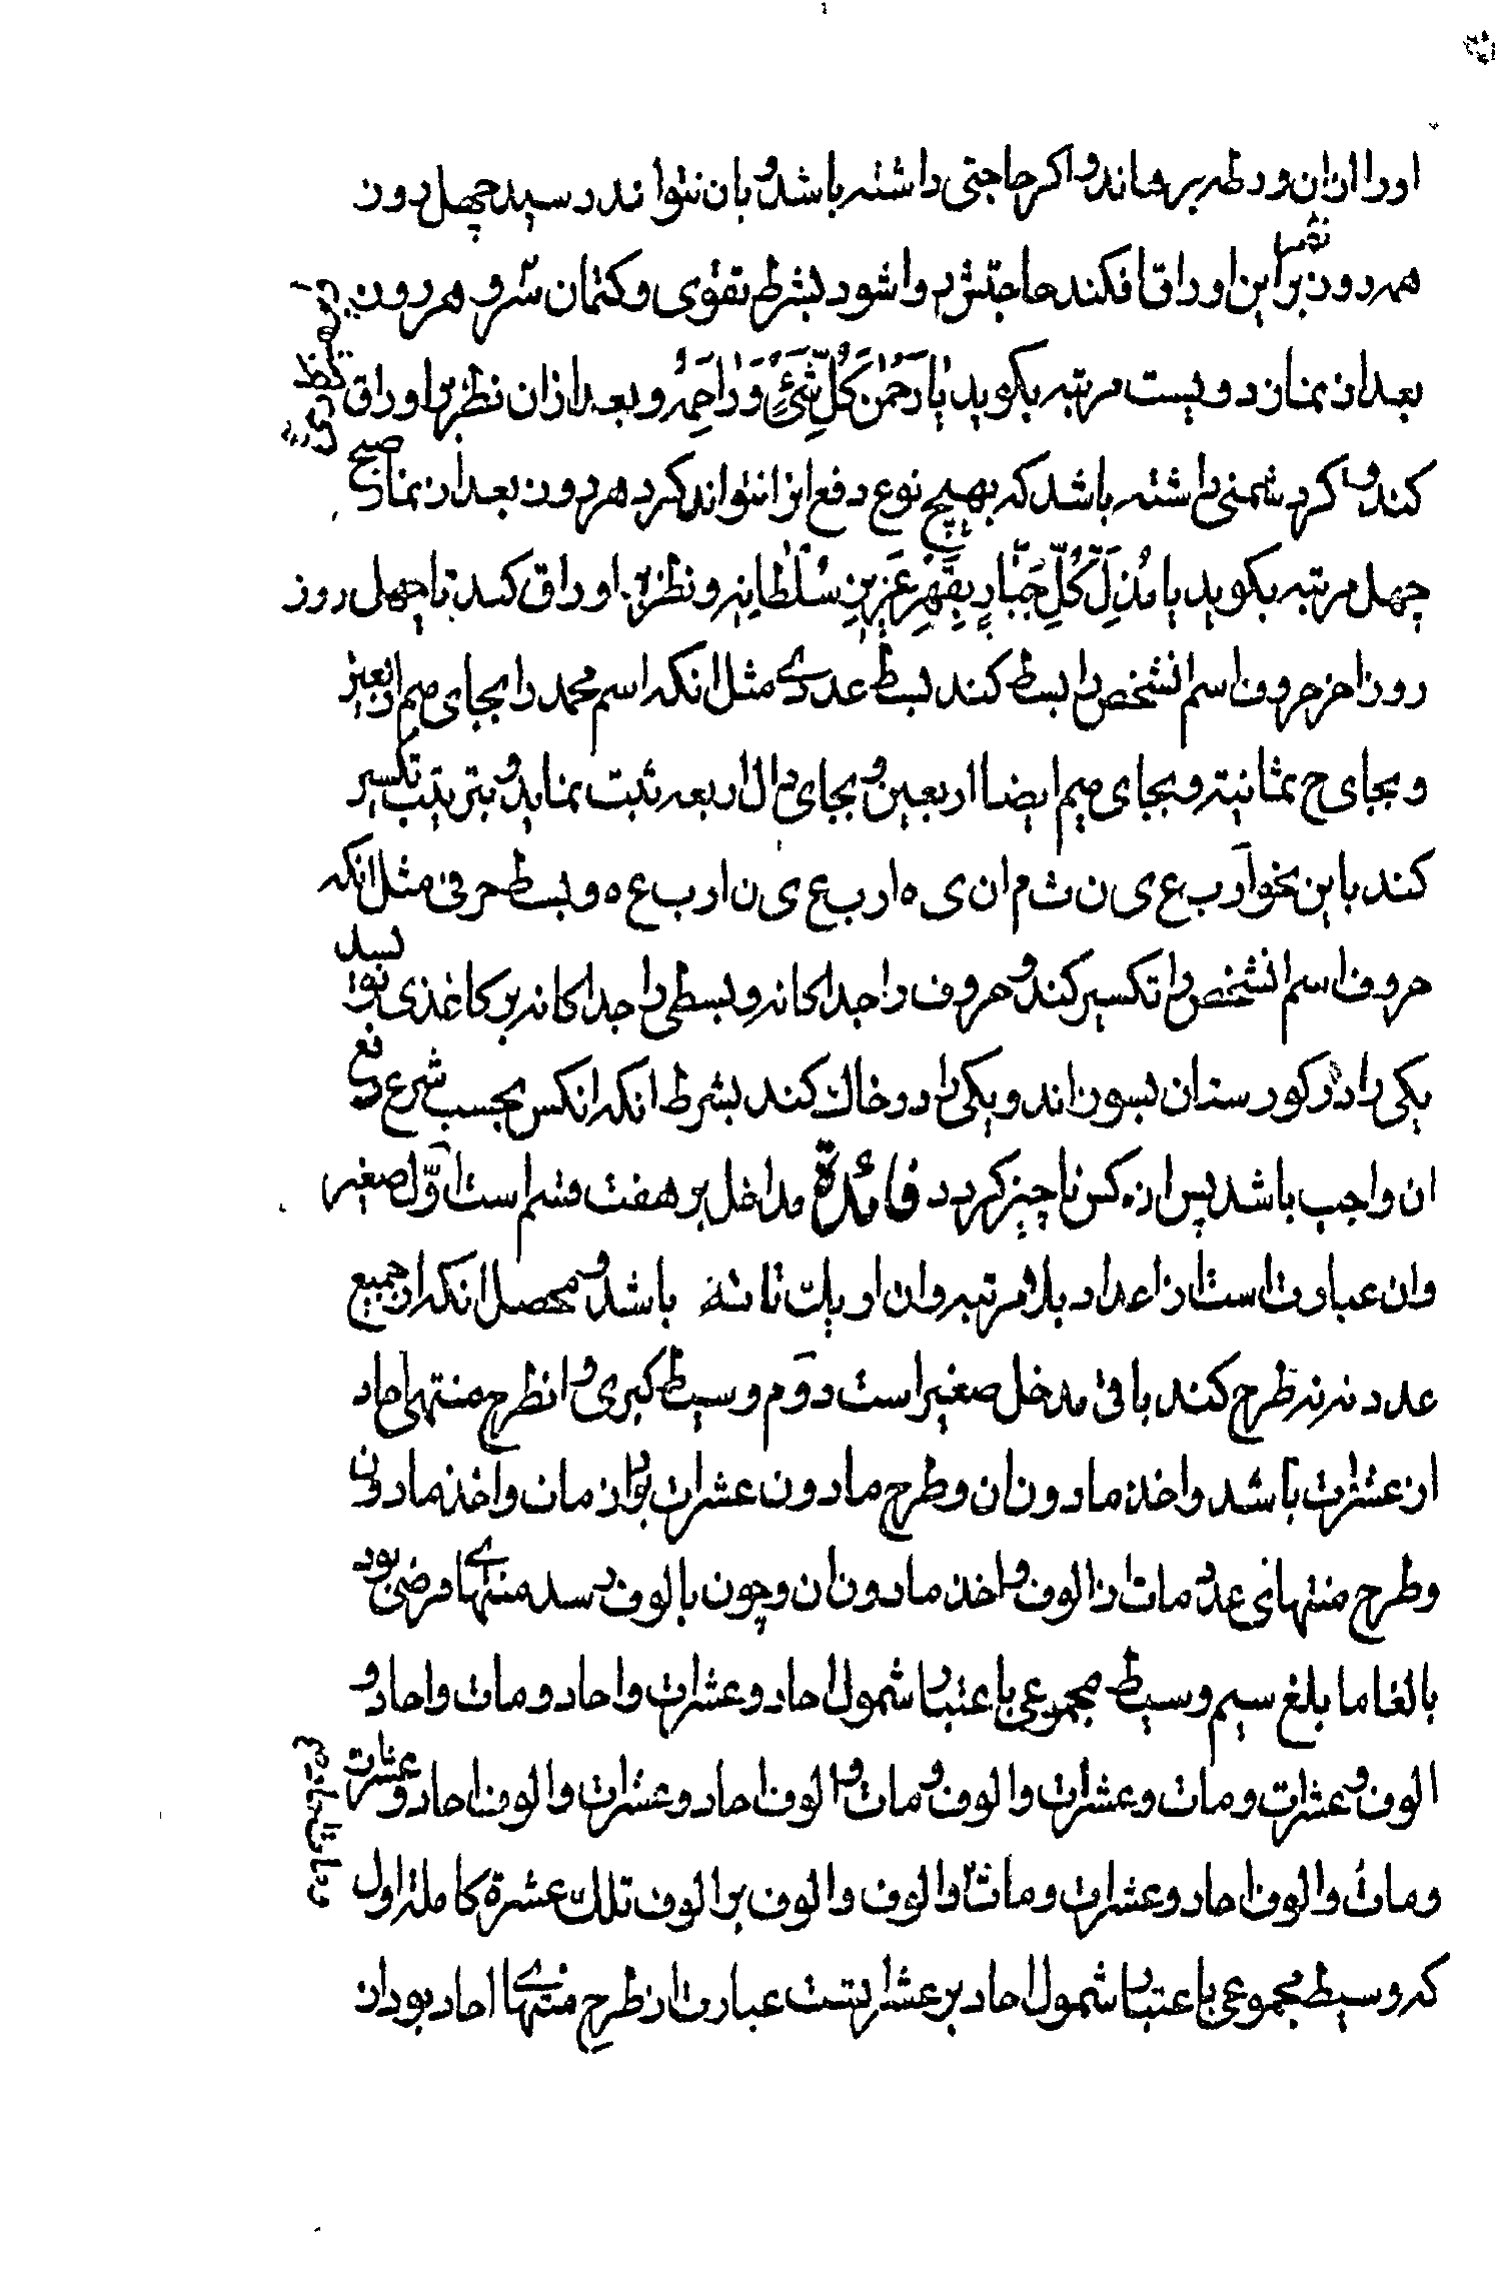 او را ازان ورطه برهاند و اکر حاجتی داشته باشد و بان نتواند رسید چهل روز
هر روز نظر براین اوراق افکند حاجتش روا شود بشرط تقوی و کتمان سرّ و هر روز
بعد از نماز دویست مرتبه بکوید یَا رَحْمٰنَ کُلِّ شَیْءٍ وَرَاحِمَهُ و بعد ازان نظر بر اوراق
کند و اکر دشمنی داشته باشد که بهیچ نوع دفع انرا نتواند کرد هر روز بعد از نماز صبح
چهل مرتبه بکوید یا مُذِلَّ کُلِّ جَبَّارٍ بِقَهْرِ عَزِیزِ سُلْطَانِهِ و نظر بر اوراق کند تا چهل روز
روز اخر حروف اسم انشخص را بسط کند بسط عددی مثل انکه اسم محمد را بجای میم اربعین
و بجای ح ثمانیة و بجای میم ایضا اربعین و بجای دال اربعه ثبت نماید و بترتیب تکسیر
کند باین نحو ا ر ب ع ی ن ث م ا ن ی ه ا ر ب ع ی ن ا ر ب ع ه و بسط حرفی مثل انکه
حروف اسم انشخص را تکسیر کند و حروف را جداکانه و بسطی را جداکانه بر کاغذی نویسد
یکی را در کورستان بسوزاند و یکی را در خاک کند بشرط انکه انکس بحسب شرع دفع
ان واجب باشد پس ان کس ناچیز کردد فائدة مداخل بر هفت قسم است اوّل صغیر
وان عبارت است از اعداد بلا مرتبه وان از یک تا نه باشد و محصل انکه از جمیع
عدد نه نه طرح کند باقی مدخل صغیر است دوم وسیط کبری و ان طرح منتهای احاد
از عشرات باشد و اخذ مادون ان و طرح مادون عشرات بود از مات و اخذ مادون
و طرح منتهای عدد مات از الوف و اخذ مادون ان و چون بالوف رسد منتهای فرضی بود
بالغا ما بلغ سیم وسیط مجموعی باعتبار شمول احاد و عشرات و احاد و مات و احاد و
الوف و عشرات و مات و عشرات و الوف و مات و الوف احاد و عشرات و الوف احاد و عشرات
و مات و الوف احاد و عشرات و مات و الوف و الوف بر الوف تلک عشرة کاملة اول
که وسیط مجموعی باعتبار شمول احاد بر عشراتست عبارت از طرح منتهای احاد بود از